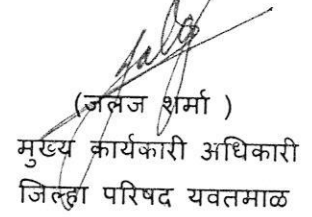 (जलज शर्मा )
मुख्य कार्यकारी अधिकारी
जिल्हा परिषद यवतमाळ